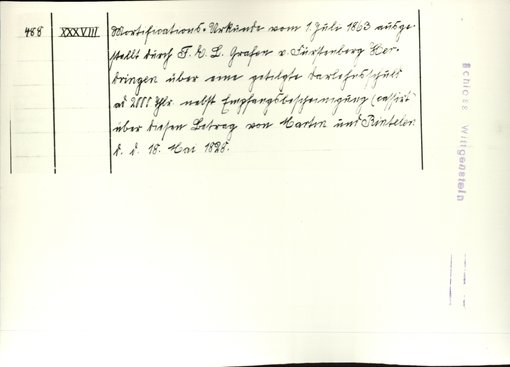 488 XXXVIII Mortifications-Urkunde vom 1. Juli 1863 ausge-
stellt durch F. E. L. Grafen v. Fürstenberg Her-
dringen über eine getilgte Darlehnsschuld
ad 2000 Thlr. nebst Empfangsbescheinigung (cassirt)
über diesen Betrag von Martin und Rintelen
d. d. 18. Mai 1828.
Schloss Wittgenstein